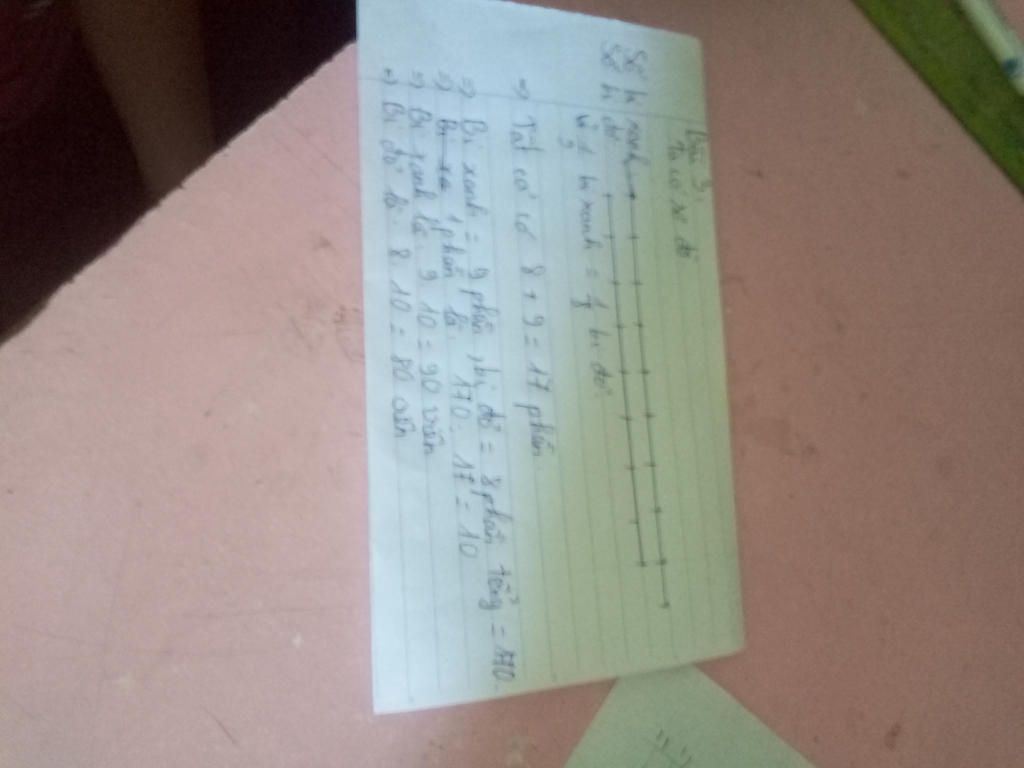 Bài 3:
Ta có sơ đồ
Số bi xanh
Số bi đỏ
Vì 1/9 bi xanh = 1/8 bi đỏ.
=> Tất cả có 8 + 9 = 17 phần.
=> Bi xanh = 9 phần, bi đỏ = 8 phần tổng = 170.
=> 1 phần là: 170 : 17 = 10
=> Bi xanh là 9 . 10 = 90 viên
=> Bi đỏ là 8 . 10 = 80 viên